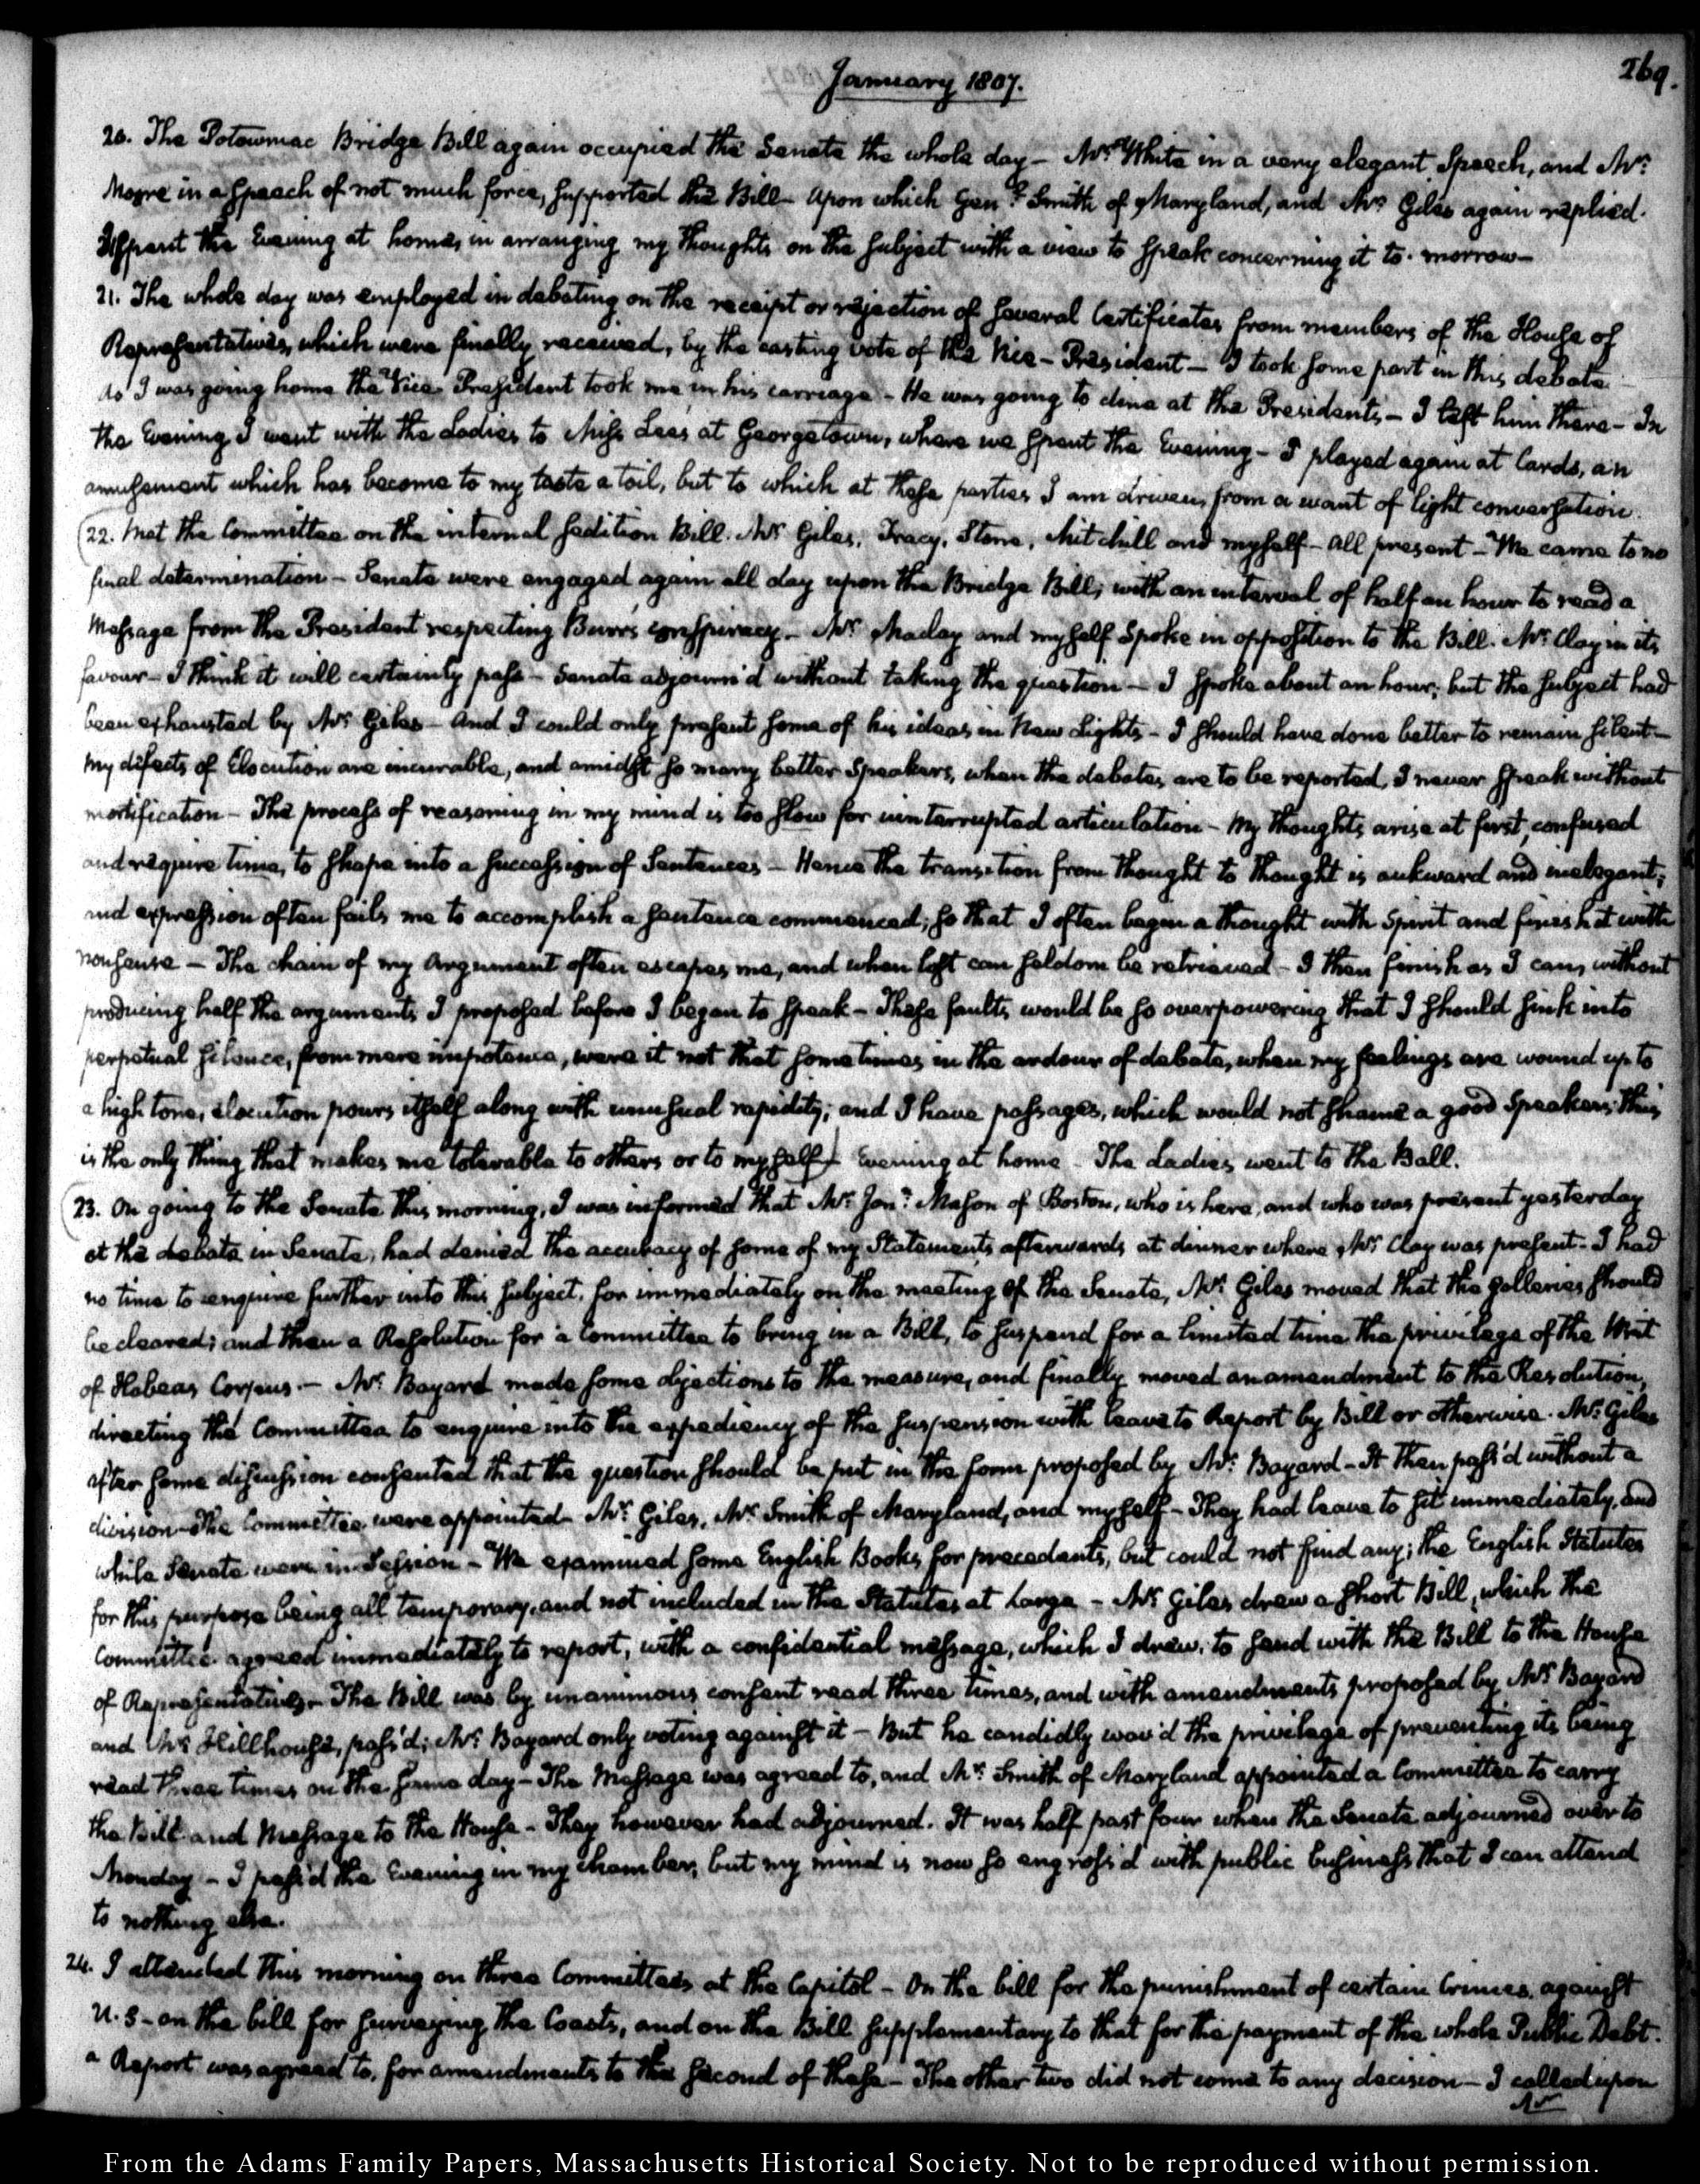 269.
January 1807.
20. The Potowmac Bridge Bill again occupied the Senate the whole day – Mr: White in a very elegant Speech, and Mr:
Moore in a speech of not much force, supported the Bill – Upon which Genl: Smith of Maryland, and Mr: Giles again replied.
I spent the Evening at home, in arranging my thoughts on the subject with a view to speak concerning it to-morrow –
21. The whole day was employed in debating on the receipt or rejection of several Certificates from members of the House of
Representatives, which were finally received, by the casting vote of the Vice-President – I took some part in this debate.
As I was going home the Vice President took me in his carriage – He was going to dine at the Presidents – I left him there – In
the Evening I went with the Ladies to Miss Lees at Georgetown, where we spent the Evening – I played again at Cards, an
amusement which has become to my taste a toil, but to which at these parties I am driven, from a want of light conversation.
22. Met the Committee on the internal sedition Bill. Mr Giles, Tracy, Stone, Mitchill and myself – all present – We came to no
final determination – Senate were engaged again all day upon the Bridge Bill, with an interval of half an hour to read a
Message from the President respecting Burr's conspiracy – Mr: Maclay and myself spoke in opposition to the Bill. Mr: Clay in its
favour – I think it will certainly pass – Senate adjourn'd without taking the question – I spoke about an hour; but the subject had
been exhausted by Mr: Giles – And I could only present some of his ideas in New Lights – I should have done better to remain silent –
My defects of Elocution are incurable, and amidst so many better Speakers, when the debates are to be reported, I never speak without
mortification – The process of reasoning in my mind is too slow for uninterrupted articulation – My thoughts arise at first, confused
and require time, to shape into a succession of Sentences – Hence the transition from thought to thought is aukward and inelegant;
and expression often fails me to accomplish a sentence commenced; so that I often begin a thought with Spirit and finish it with
nonsense – The chain of my Argument often escapes me, and when lost can seldom be retrieved – I then finish as I can, without
producing half the arguments I proposed before I began to speak – These faults would be so overpowering that I should sink into
perpetual silence, from mere impotence, were it not that sometimes in the ardour of debate, when my feelings are wound up to
a high tone, elocution pours itself along with unusual rapidity; and I have passages, which would not shame a good Speaker; this
is the only thing that makes me tolerable to others or to myself) Evening at home – The Ladies went to the Ball.
23. On going to the Senate this morning, I was informed that Mr: Jonn: Mason of Boston, who is here, and who was present yesterday
at the debate in Senate, had denied the accuracy of some of my Statements afterwards at dinner where Mr: Clay was present – I had
no time to enquire further into this subject, for immediately on the meeting of the Senate, Mr: Giles moved that the galleries should
be cleared; and then a Resolution for a Committee to bring in a Bill, to suspend for a limited time the privilege of the Writ
of Habeas Corpus. – Mr: Bayard made some objections to the measure, and finally moved an amendment to the Resolution,
directing the Committee to enquire into the expediency of the suspension with leave to Report by Bill or otherwise. Mr: Giles
after some discussion consented that the question should be put in the form proposed by Mr: Bayard – It then pass'd without a
division – The Committee were appointed – Mr: Giles, Mr: Smith of Maryland, and myself – They had leave to sit immediately, and
while Senate were in Session – We examined some English Books for precedents, but could not find any; the English Statutes
for this purpose being all temporary, and not included in the Statutes at Large – Mr Giles drew a short Bill, which the
Committee agreed immediately to report, with a confidential message, which I drew, to send with the Bill to the House
of Representatives. The Bill was by unanimous consent read three times, and with amendments proposed by Mr: Bayard
and Mr Hillhouse, pass'd; Mr: Bayard only voting against it – But he candidly wav'd the privilege of preventing its being
read three times on the same day – The Message was agreed to, and Mr: Smith of Maryland appointed a Committee to carry
the Bill and Message to the House – They however had adjourned. It was half past four when the Senate adjourned over to
Monday – I pass'd the Evening in my chamber, but my mind is now so engross'd with public business that I can attend
to nothing else.
24. I attended this morning on three Committees at the Capitol – On the bill for the punishment of certain Crimes, against
U.S – on the bill for surveying the Coasts, and on the Bill supplementary to that for the payment of the whole Public Debt.
a Report was agreed to, for amendments to the second of these – The other two did not come to any decision – I called upon
Mr
From the Adams Family Papers, Massachusetts Historical Society. Not to be reproduced without permission.